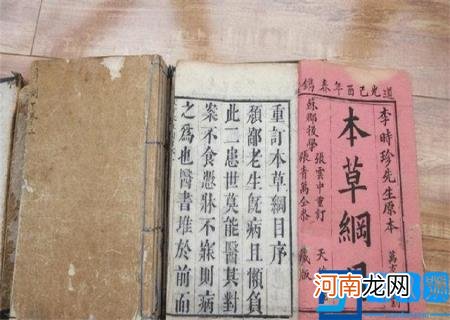 道光己酉年春鐫
李時珍先生原本
本草綱
蘇郡後學
張雲中重訂
張青萬仝參
天
藏版
重訂本草綱目序
頽鄙老生旣病且懶負
此二患世莫能醫其對
案不食憑牀不寐則病
之為也醫書堆於前而